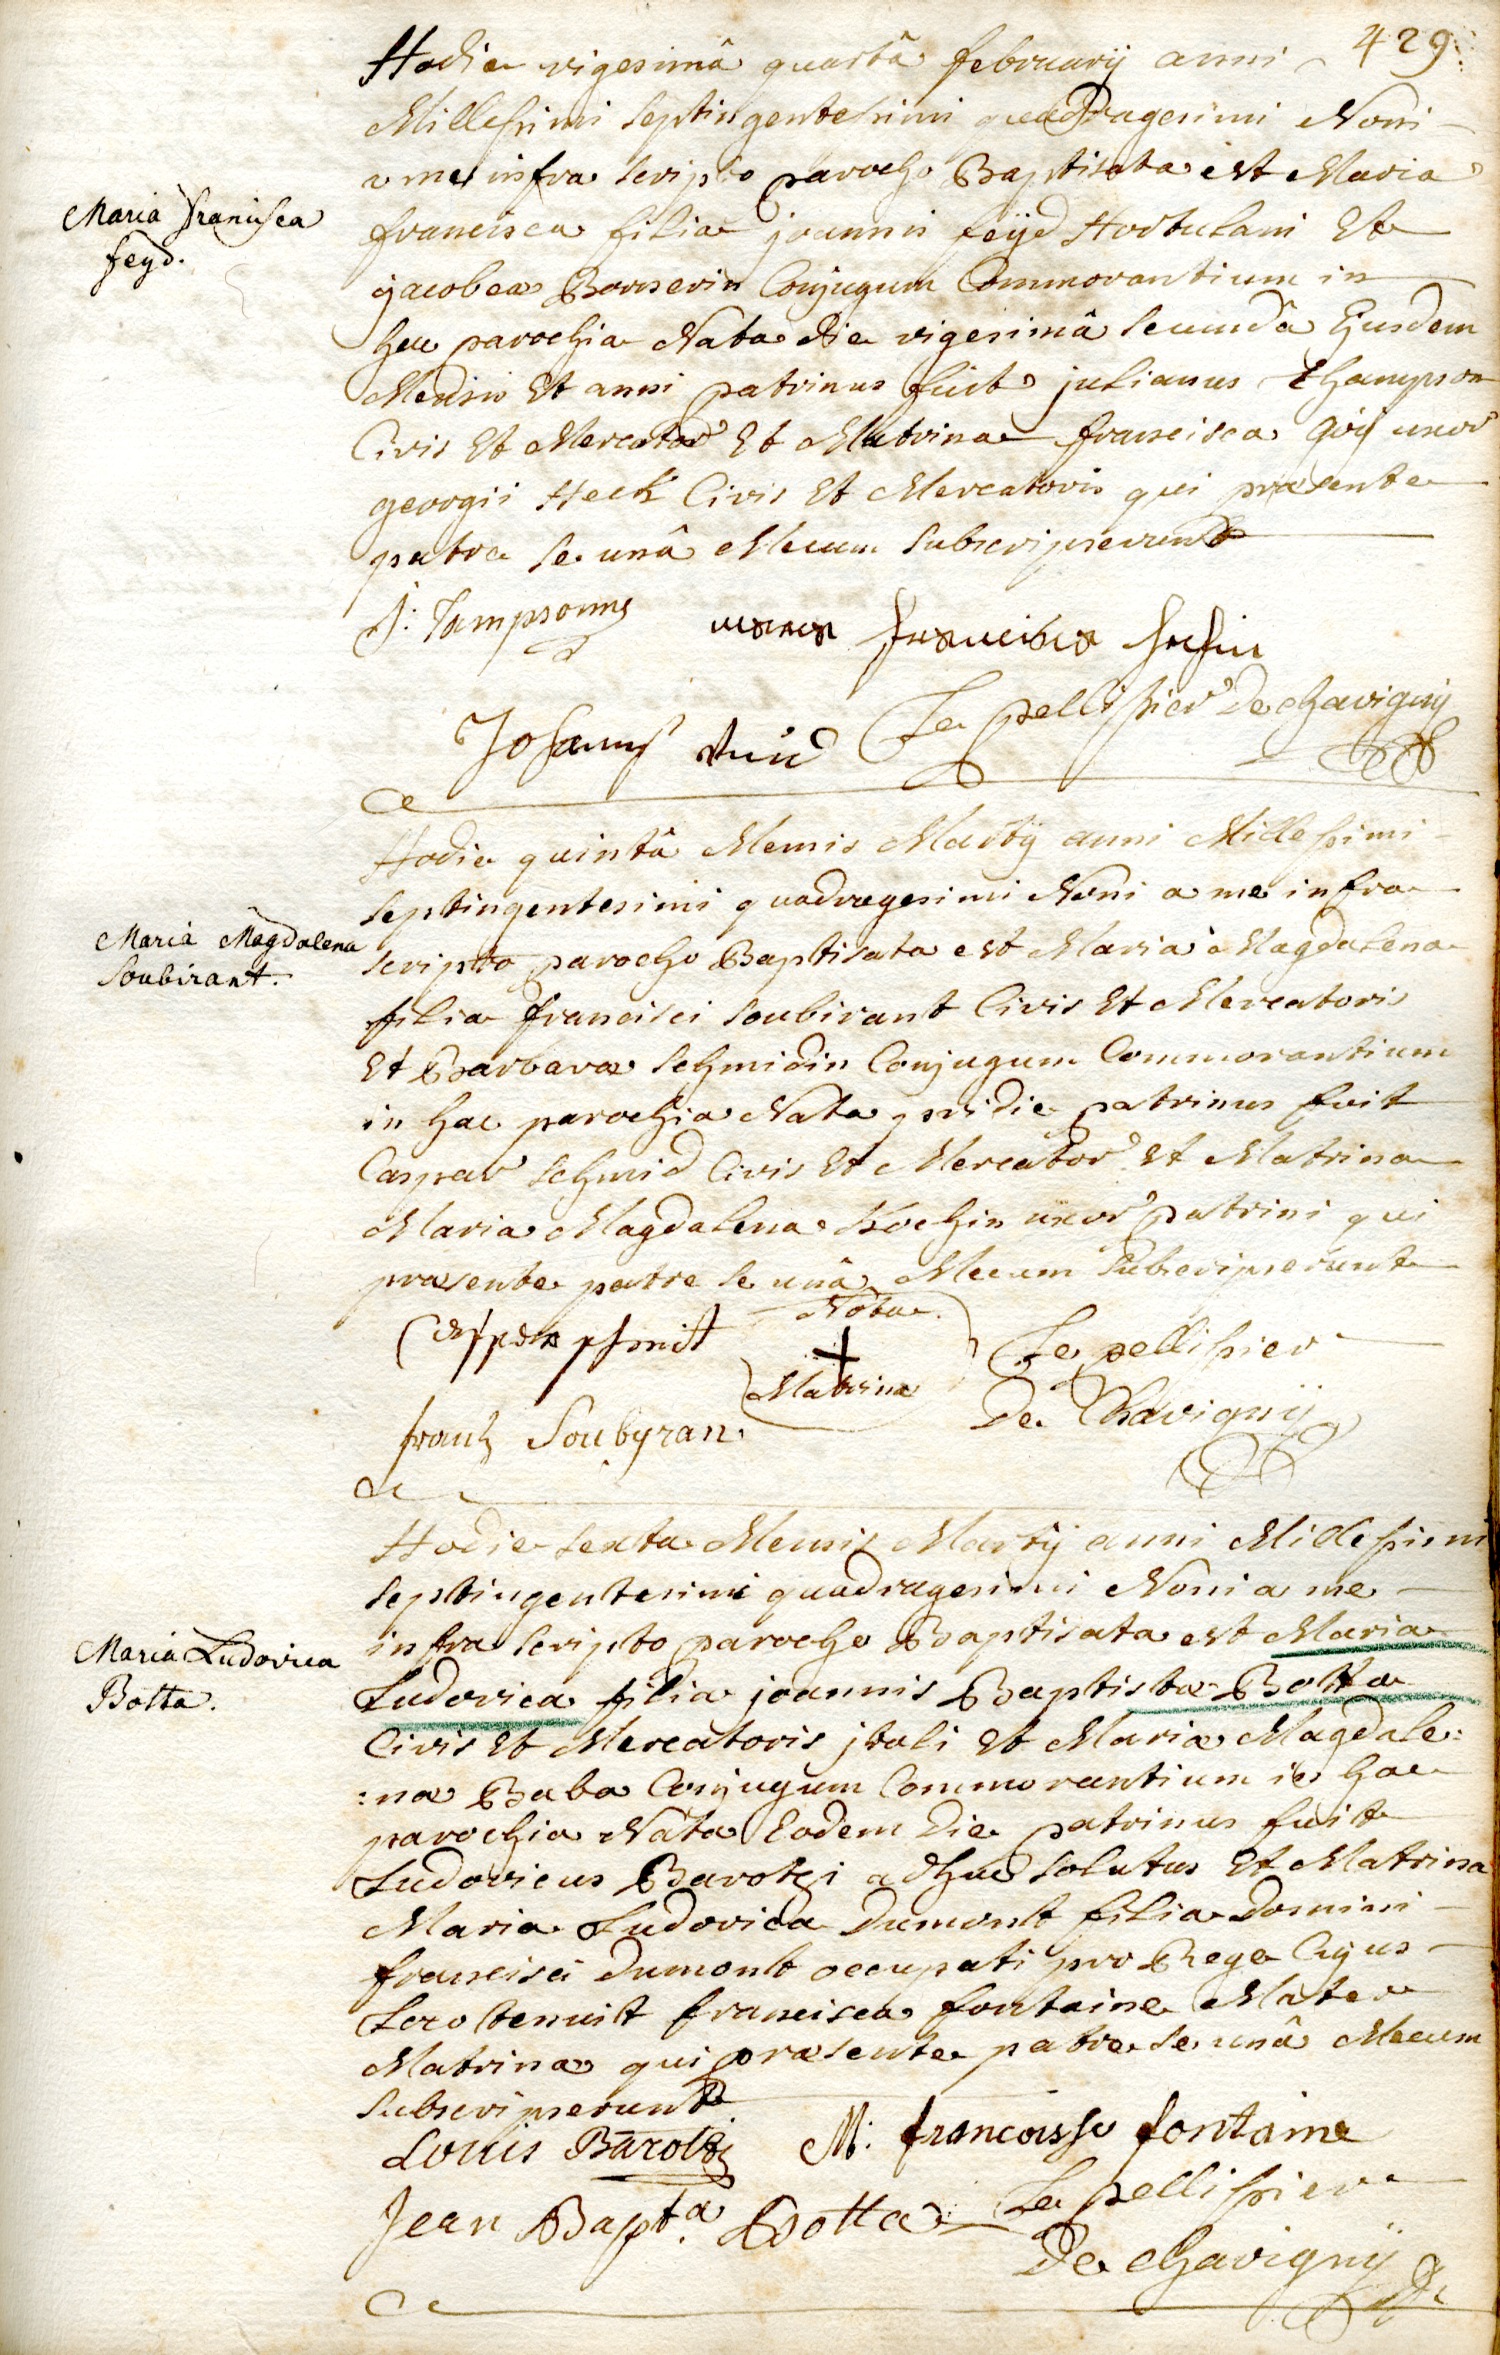 429.
Hodie vigesimâ quartâ februarij anni
Millesimi septingentesimi quadragesimi Noni
a me infra scripto parocho Baptisata est Maria
Maria Francisca
feyd.
francisca filia joannis feijd Hortulani Et
jacobea Bornerin Conjugum Commorantium in
hac parochia Nata die vigesimâ secundâ Ejusdem
Mensis Et anni patrinus fuit julianus Thampson
Civis Et Mercator Et Matrina francisca uxor
georgii Heck Civis Et Mercatoris qui præsente
patre se unâ Mecum subscripserunt
J: Tampsonny maria francisca
Johannes Le pellissier De chavigny
Hodie quintâ Mensis Martij anni Millesimi
septingentesimi quadragesimi Noni a me infra
Maria Magdalena
Soubirant.
scripto parocho Baptisata est Maria Magdalena
filia francisci soubirant Civis Et Mercatoris
Et Barbaræ schmidin Conjugum Commorantium
in hac parochia Nata pridie patrinus fuit
Caspar schmid Civis Et Mercator Et Matrina
Maria Magdalena Kochin uxor patrini qui
præsente patre se unâ Mecum subscripserunt
Nota
Casper schmit + Le pellissier
Matrina
frantz Soubyran. De Chavignij
Hodie sexta Mensis Martij anni Millesimi
septingentesimi quadragesimi Noni a me
infra scripto parocho Baptisata est Maria
Maria Ludovica
Botta.
Ludovica filia joannis Baptistæ Botta
Civis Et Mercatoris jtali Et Mariæ Magdale:
:næ Baba Conjugum Commorantium in hac
parochia Nata Eodem die patrinus fuit
Ludovicus Barotzi adhuc solutus Et Matrina
Maria Ludovica Dumont filia Domini
francisci Dumont occupati pro Rege Cujus
Loco tenuit francisca fontaine Mater
Matrinæ qui præsente patre se unâ Mecum
subscripserunt
Louis Barotzi M: francoisse fontaine
Jean Bapt.a Botta Le pellissier
De chavignij